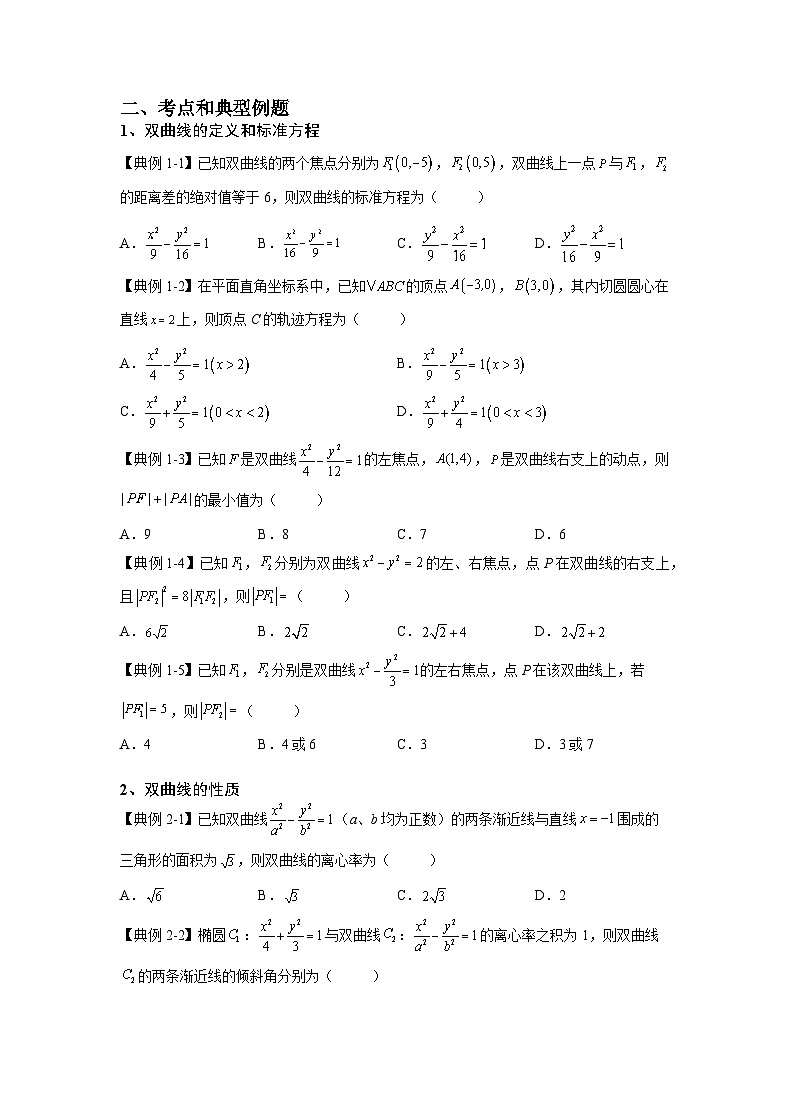 二、考点和典型例题
1、双曲线的定义和标准方程
【典例 1-1】已知双曲线的两个焦点分别为 F₁(0,−5)，F₂(0,5)，双曲线上一点 P 与 F₁，F₂
的距离差的绝对值等于 6，则双曲线的标准方程为（ ）
A．x²/9 − y²/16 = 1 B．x²/16 − y²/9 = 1 C．y²/9 − x²/16 = 1 D．y²/16 − x²/9 = 1
【典例 1-2】在平面直角坐标系中，已知 V ABC 的顶点 A(−3,0)，B(3,0)，其内切圆圆心在
直线 x = 2 上，则顶点 C 的轨迹方程为（ ）
A．x²/4 − y²/5 = 1(x > 2) B．x²/9 − y²/5 = 1(x > 3)
C．x²/9 + y²/5 = 1(0 < x < 2) D．x²/9 + y²/4 = 1(0 < x < 3)
【典例 1-3】已知 F 是双曲线 x²/4 − y²/12 = 1 的左焦点，A(1,4)，P 是双曲线右支上的动点，则
|PF|+|PA| 的最小值为（ ）
A．9 B．8 C．7 D．6
【典例 1-4】已知 F₁，F₂ 分别为双曲线 x² − y² = 2 的左、右焦点，点 P 在双曲线的右支上，
且 |PF₂|² = 8|F₁F₂|，则 |PF₁| =（ ）
A．6√2 B．2√2 C．2√2 + 4 D．2√2 + 2
【典例 1-5】已知 F₁，F₂ 分别是双曲线 x² − y²/3 = 1 的左右焦点，点 P 在该双曲线上，若
|PF₁| = 5，则 |PF₂| =（ ）
A．4 B．4 或 6 C．3 D．3 或 7
2、双曲线的性质
【典例 2-1】已知双曲线 x²/a² − y²/b² = 1（a、b 均为正数）的两条渐近线与直线 x = −1 围成的
三角形的面积为 √3，则双曲线的离心率为（ ）
A．√6 B．√3 C．2√3 D．2
【典例 2-2】椭圆 C₁：x²/4 + y²/3 = 1 与双曲线 C₂：x²/a² − y²/b² = 1 的离心率之积为 1，则双曲线
C₂ 的两条渐近线的倾斜角分别为（ ）